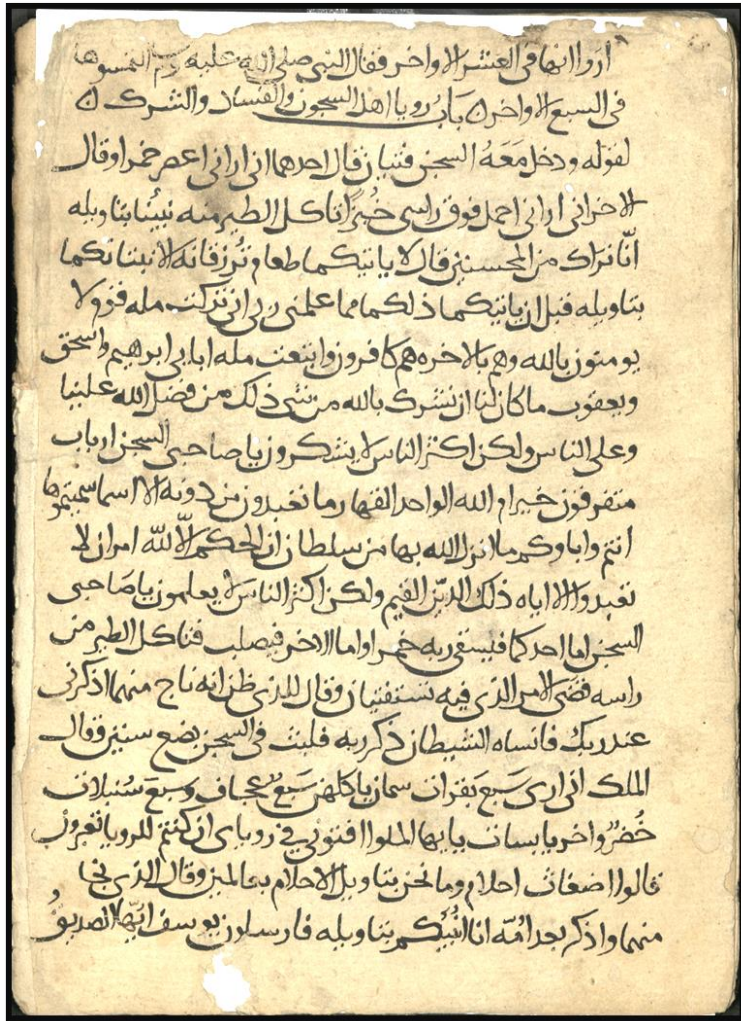 اروا انها فى العشر الاواخر فقال النبى صلى الله عليه وسلم التمسوها
فى السبع الاواخر ن باب رويا اهل السجون والفساد والشرك ن
لقوله ودخل معَهُ السجن فتيان قال احدهما انى ارانى اعصر خمرا وقال
الاخر انى ارانى احمل فوق راسى خُبزًا تاكل الطير منه نبِّئنا بتاويله
انّا نراك من المحسنين قال لا ياتيكما طعام تُرزقانه الا نبئاتكما
بتاويله قبل ان ياتيكما ذلكما مما علمنى ربى انى تركت مله قوم لا
يومنون بالله وهم بالاخره هم كافرون واتبعت مله اباىى ابرهيم واسحق
ويعقوب ما كان لنا ان نشرك بالله من شى ذلك من فضل الله علينا
وعلى الناس ولكن اكثر الناس لا يشكرون يا صاحبى السجن ارباب
متفرقون خير ام الله الواحد القهار ما تعبدون من دونه الا اسما سميتموها
انتم واباوكم ما انزل الله بها من سلطان ان الحكم الّا للّه امر ان لا
تعبدوا الا اياه ذلك الدّين القيم ولكن اكثر الناس لا يعلمون يا صَاحبى
السجن اما احدكما فيسقى ربه خمرا واما الاخر فيصلب فتاكل الطير من
راسه قضى الامر الذى فيه تستفتيان وقال للذى ظن انه ناج منهما اذكرنى
عند ربك فانساه الشيطان ذكر ربه فلبث فى السجن بضع سنين وقال
الملك انى ارى سَبع بَقرات سمان ياكلهن سَبعٌ عجاف وسبعَ سُنبلات
خُضرٌ واخر يابسات يايها الملوا افتونى فى روياى ان كنتم للرويا تعبرون
قالوا اضغاث احلام وما نحن بتاويل الاحلام بعالمين وقال الذى نجا
منهما واذكر بعد امّه انا انُبئكم بتاويله فارسلون يوسف ايّها الصديقُ